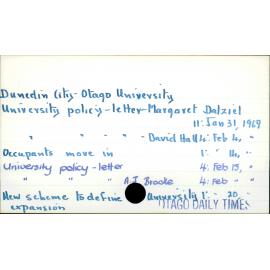 Dunedin City - Otago University
University policy - letter - Margaret Dalziel
11: Jan 31, 1969
" " " " - David Hall 4: Feb 4, "
Occupants move in 1: " 14, "
University policy - letter 4: Feb 15, "
" " " A.I. Brooke 4: Feb " "
New scheme to define University 1: " 20, "
expansion
OTAGO DAILY TIMES